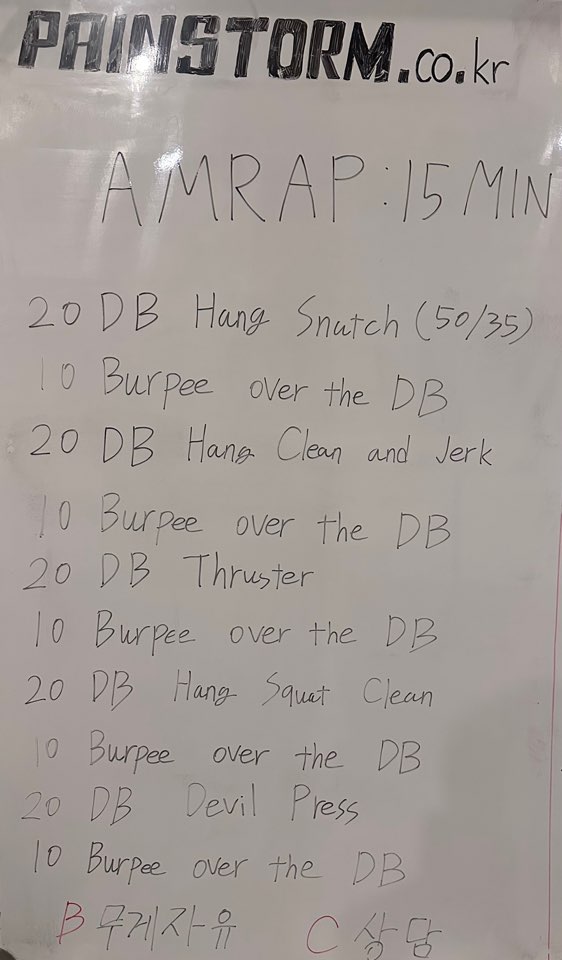 PAINSTORM.co.kr
AMRAP:15 MIN
20 DB Hang Snatch (50/35)
10 Burpee over the DB
20 DB Hang Clean and Jerk
10 Burpee over the DB
20 DB Thruster
10 Burpee over the DB
20 DB Hang Squat Clean
10 Burpee over the DB
20 DB Devil Press
10 Burpee over the DB
B 무게자유 C 상담